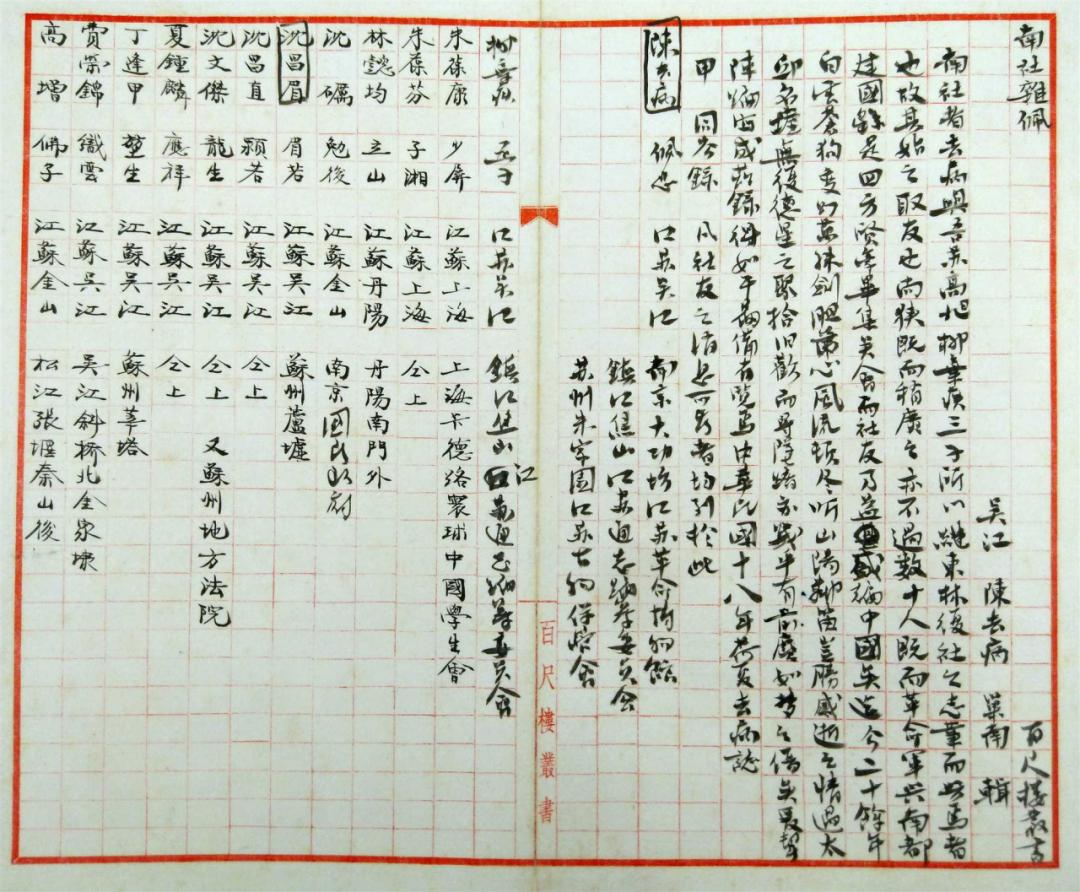 南社雜佩 百尺樓叢書
吳江 陳去病 巢南 輯
南社者去病與吾弟高旭柳棄疾三子所以繼東林復社之志業而興焉者
也故其始之取友也尚狹既而稍廣之亦不過數十人既而革命軍興南都
建國於是四方賢畢集其會而社友乃益盛徧中國矣迄今二十餘年
白雲蒼狗變幻劍膽簫心風流頓尽听山陽鄰笛豈勝感逝之情過太
邱名墟無復德星之聚拾旧歡而尋隱踪前塵如梦之傷矣爰
陳編寫成茲錄得如干備有覽焉中華民國十八年荷夏去病誌
甲 同岑錄 凡社友之消息可考者均列於此
陳去病 佩忍 江蘇吳江 南京大功坊江蘇革命博物館
鎮江焦山江蘇通志編纂委員會
蘇州朱家園江蘇古物保管會
柳棄疾 亞子 江蘇吳江 鎮江焦山江蘇通志編纂委員會
朱葆康 少屏 江蘇上海 上海卡德路寰球中國學生會
朱葆芬 子湘 江蘇上海 仝上
林懿均 立山 江蘇丹陽 丹陽南門外
沈礪 勉後 江蘇金山 南京國民政府
沈昌眉 眉若 江蘇吳江 蘇州蘆墟
沈昌直 潁若 江蘇吳江 仝上
沈文傑 龍生 江蘇吳江 仝上 又蘇州地方法院
夏鍾麟 應祥 江蘇吳江 仝上
丁逢甲 堃生 江蘇吳江 蘇州莘塔
費榮錦 織雲 江蘇吳江 吳江斜橋北金家埭
高增 佛子 江蘇金山 松江張堰秦山後
百尺樓叢書